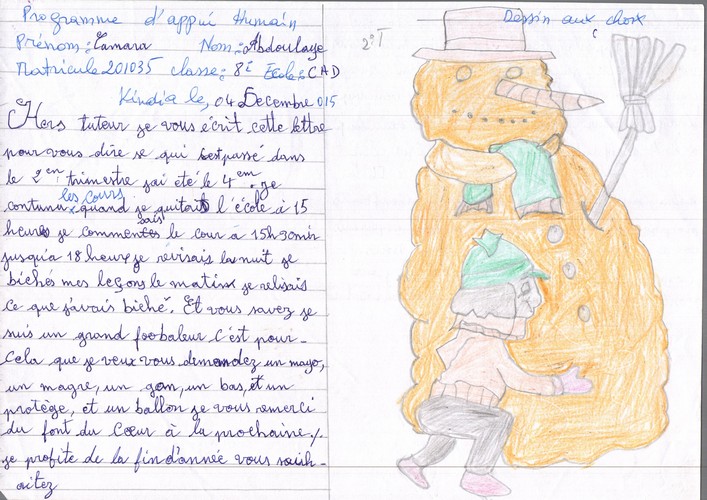 Programme d'appui Humain
Prénom : Camara Nom : Abdoulaye
Matricule 201035 classe : 8e Ecole : CAD
Kindia le, 04 Decembre 015
Hers tuteur je vous écrit cette lettre
pour vous dire se qui c'est passé dans
le 2 em trimestre j'ai été le 4 em. je
contunu les cours quand je quitait l'école à 15
heures je commentes le cour à 15h30min
jusqu'à 18 heure je révisais la nuit je
bichés mes leçons le matin je relisais
ce que j'avais biché. Et vous savez je
suis un grand foobaleur c'est pour
cela que je veux vous demandez un mayo,
un magre, un gon, un bas, et un
protège, et un ballon je vous remerci
du font du Cœur à la prochaine./.
je profite de la fin d'année vous souh-
aitez
Dessin aux choix
2°T